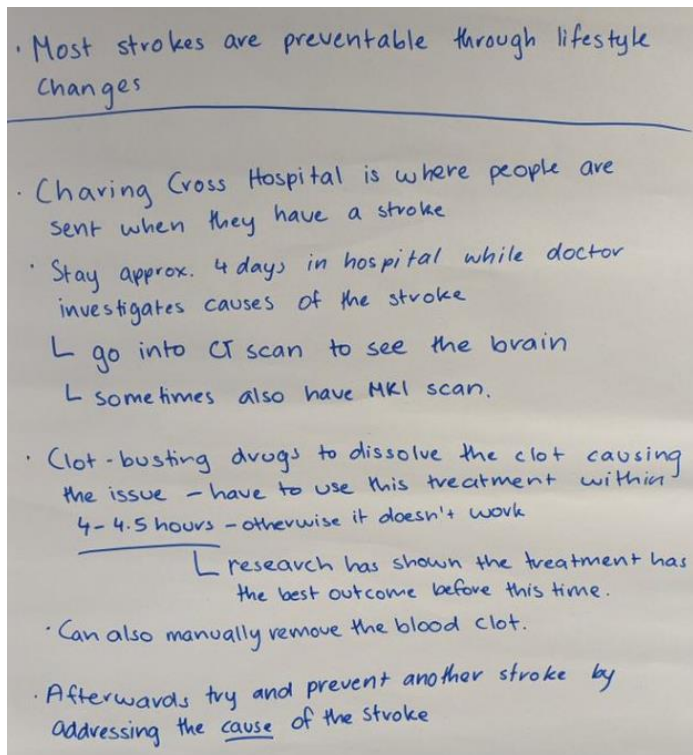 · Most strokes are preventable through lifestyle
changes
· Charing Cross Hospital is where people are
sent when they have a stroke
· Stay approx. 4 days in hospital while doctor
investigates causes of the stroke
└ go into CT scan to see the brain
└ sometimes also have MRI scan.
· Clot-busting drugs to dissolve the clot causing
the issue – have to use this treatment within
4-4.5 hours – otherwise it doesn't work
└ research has shown the treatment has
the best outcome before this time.
· Can also manually remove the blood clot.
· Afterwards try and prevent another stroke by
addressing the cause of the stroke